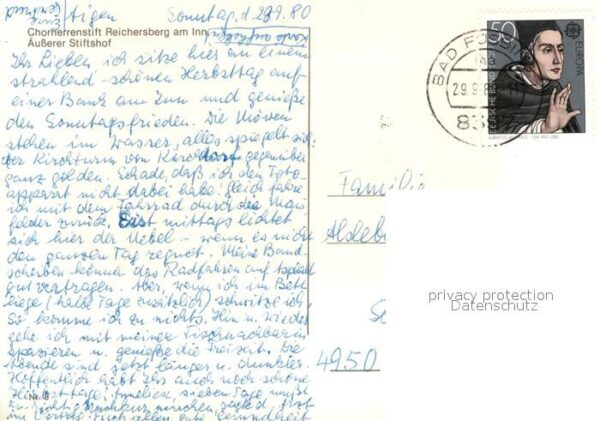 Aigen Sonntag, d. 28.9.80
Chorherrenstift Reichersberg am Inn
Äußerer Stiftshof
Ihr Lieben ich sitze hier an einem
strahlend-schönen Herbsttag auf
einer Bank am Inn und genieße
den Sonntagsfrieden. Die Möven
stehen im Wasser, alles spiegelt sich:
der Kirchturm von Kirchdorf gegenüber
ganz golden. Schade, daß ich den Foto-
apparat nicht dabei habe! Gleich fahre
ich mit dem Fahrrad durch die Mais
felder zurück. Erst mittags lichtet
sich hier der Nebel – wenn es nicht
den ganzen Tag regnet. Meine Band-
scheiben können das Radfahren auf Asphalt
gut vertragen. Aber, wenn ich im Bett
liege (halbe Tage zusätzlich) schwitze ich.
So komme ich zu nichts. Hin u. wieder
gehe ich mit meiner Tischnachbarin
spazieren u. genieße die Freizeit. Die
Abende sind jetzt länger u. dunkler.
Hoffentlich habt Ihr auch noch schöne
Herbsttage, sieben Tage
Nr. 3
auch allen gute Gesundheit
Familie
4950
50
EUROPA
DEUTSCHE BUNDESPOST
BAD FÜSSING
29.9.8
privacy protection
Datenschutz